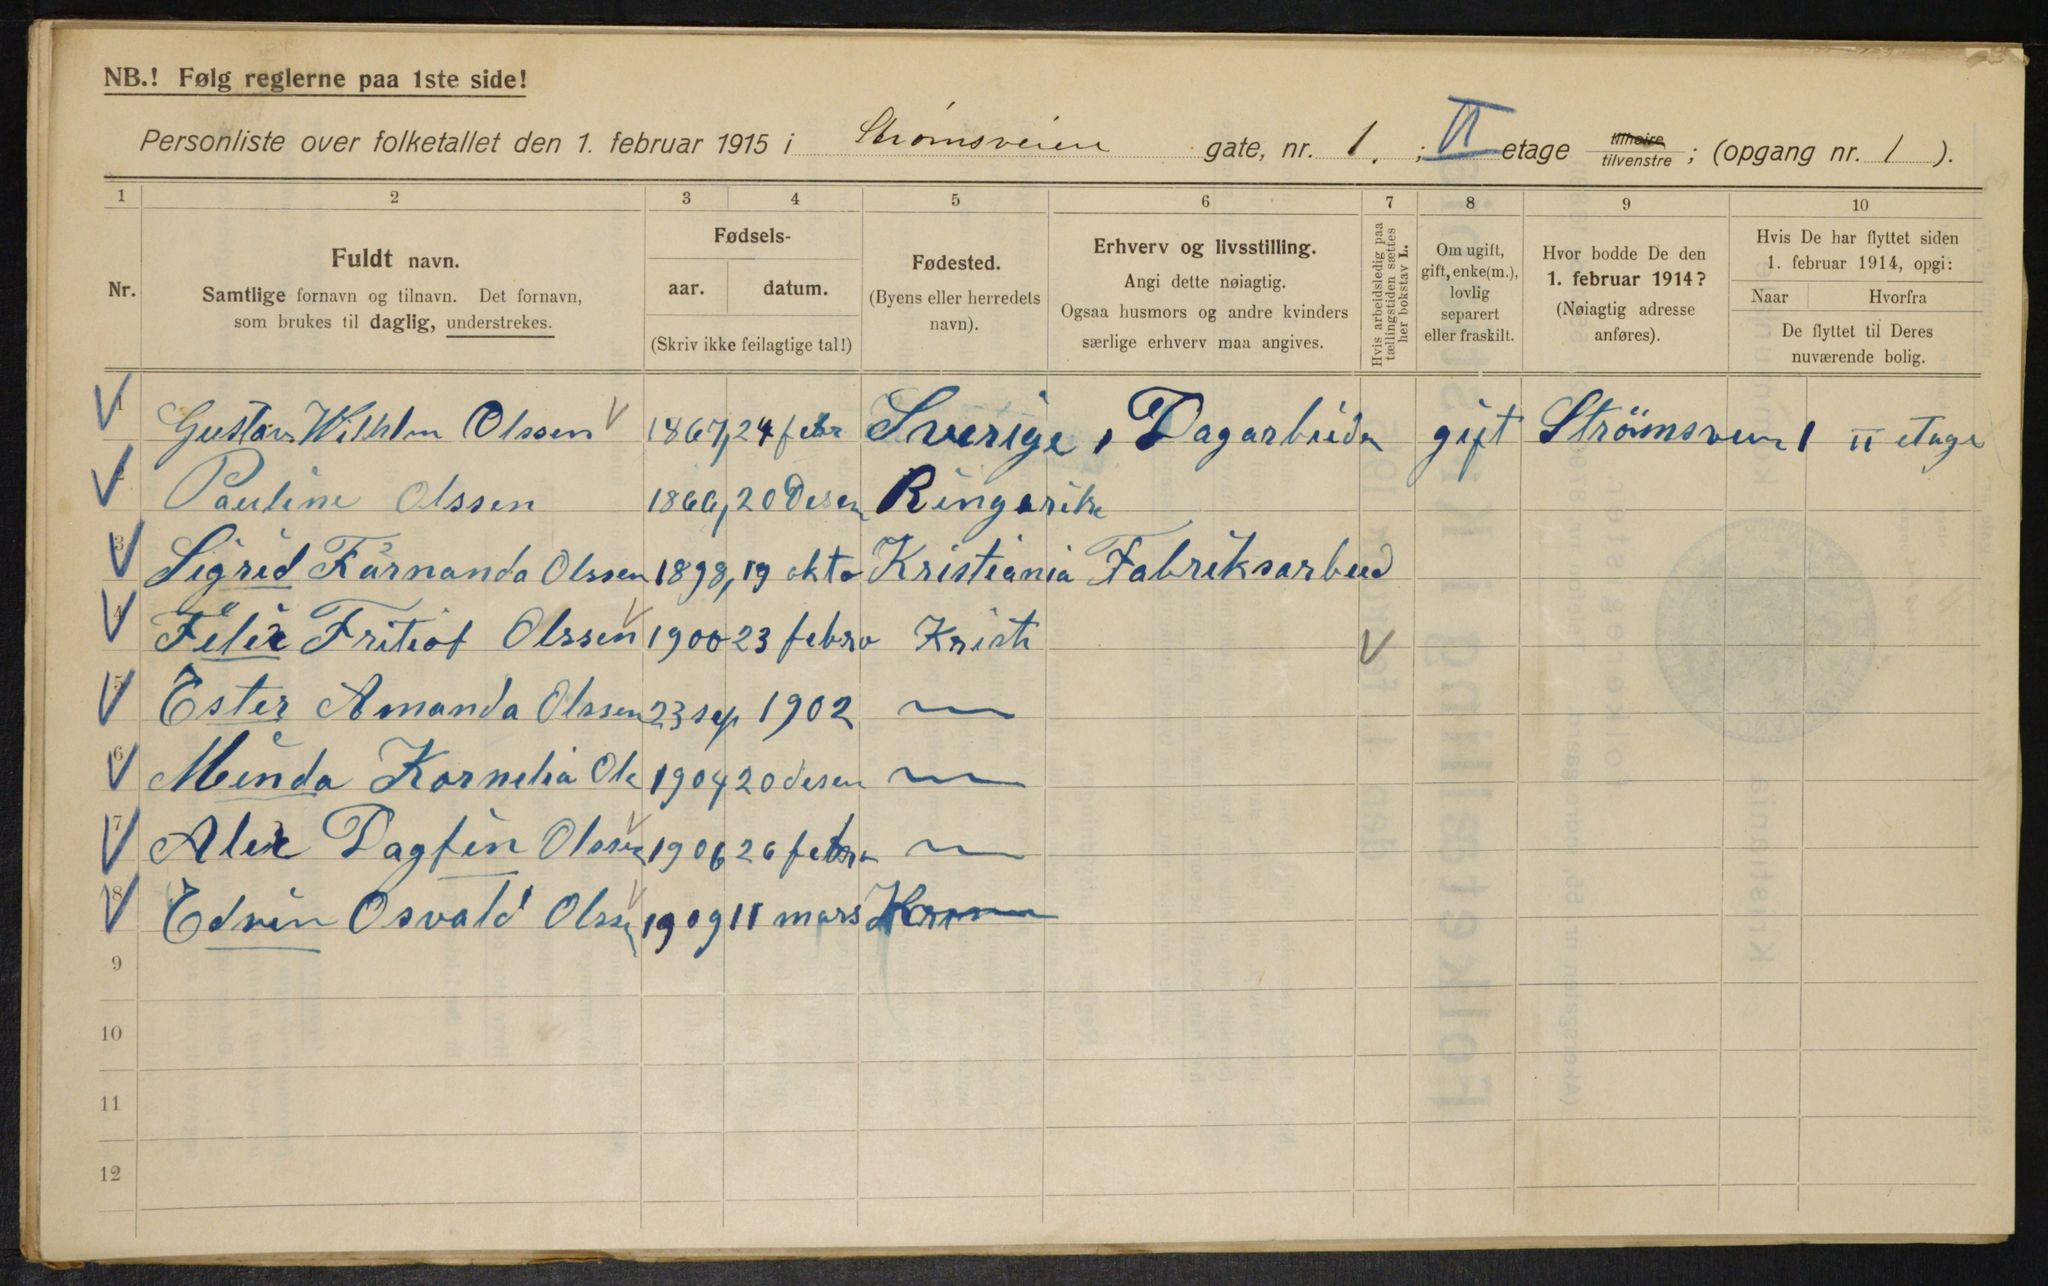 NB.! Følg reglerne paa 1ste side!
Personliste over folketallet den 1. februar 1915 i Strømsveien gate, nr. 1. ; II etage tilhøire tilvenstre ; (opgang nr. 1 ).
1 2 3 4 5 6 7 8 9 10
Nr.
Fuldt navn.
Samtlige fornavn og tilnavn. Det fornavn,
som brukes til daglig, understrekes.
Fødsels-
aar. datum.
(Skriv ikke feilagtige tal!)
Fødested.
(Byens eller herredets
navn).
Erhverv og livsstilling.
Angi dette nøiagtig.
Ogsaa husmors og andre kvinders
særlige erhverv maa angives.
Hvis arbeidsledig paa
tællingstiden sættes
her bokstav L.
Om ugift,
gift, enke(m.),
lovlig
separert
eller fraskilt.
Hvor bodde De den
1. februar 1914?
(Nøiagtig adresse
anføres).
Hvis De har flyttet siden
1. februar 1914, opgi:
Naar Hvorfra
De flyttet til Deres
nuværende bolig.
1 Gustav Wilhlm Olssen 1867, 24 febr Sverige, Dagarbeider gift Strömsvein 1 II etage
2 Pauline Olssen 1866, 20 Desem Ringerike
3 Sigrid Farnanda Olssen 1898, 19 okto Kristiania Fabriksarbeid
4 Felix Fritiof Olssen 1900 23 febro Krist
5 Ester Amanda Olssen 23 sep 1902 —
6 Minda Kornelia Ols 1904 20 desem —
7 Alex Dagfin Olssen 1906 26 febru —
8 Edvin Osvald Olssen 1909 11 mars Kr
9
10
11
12